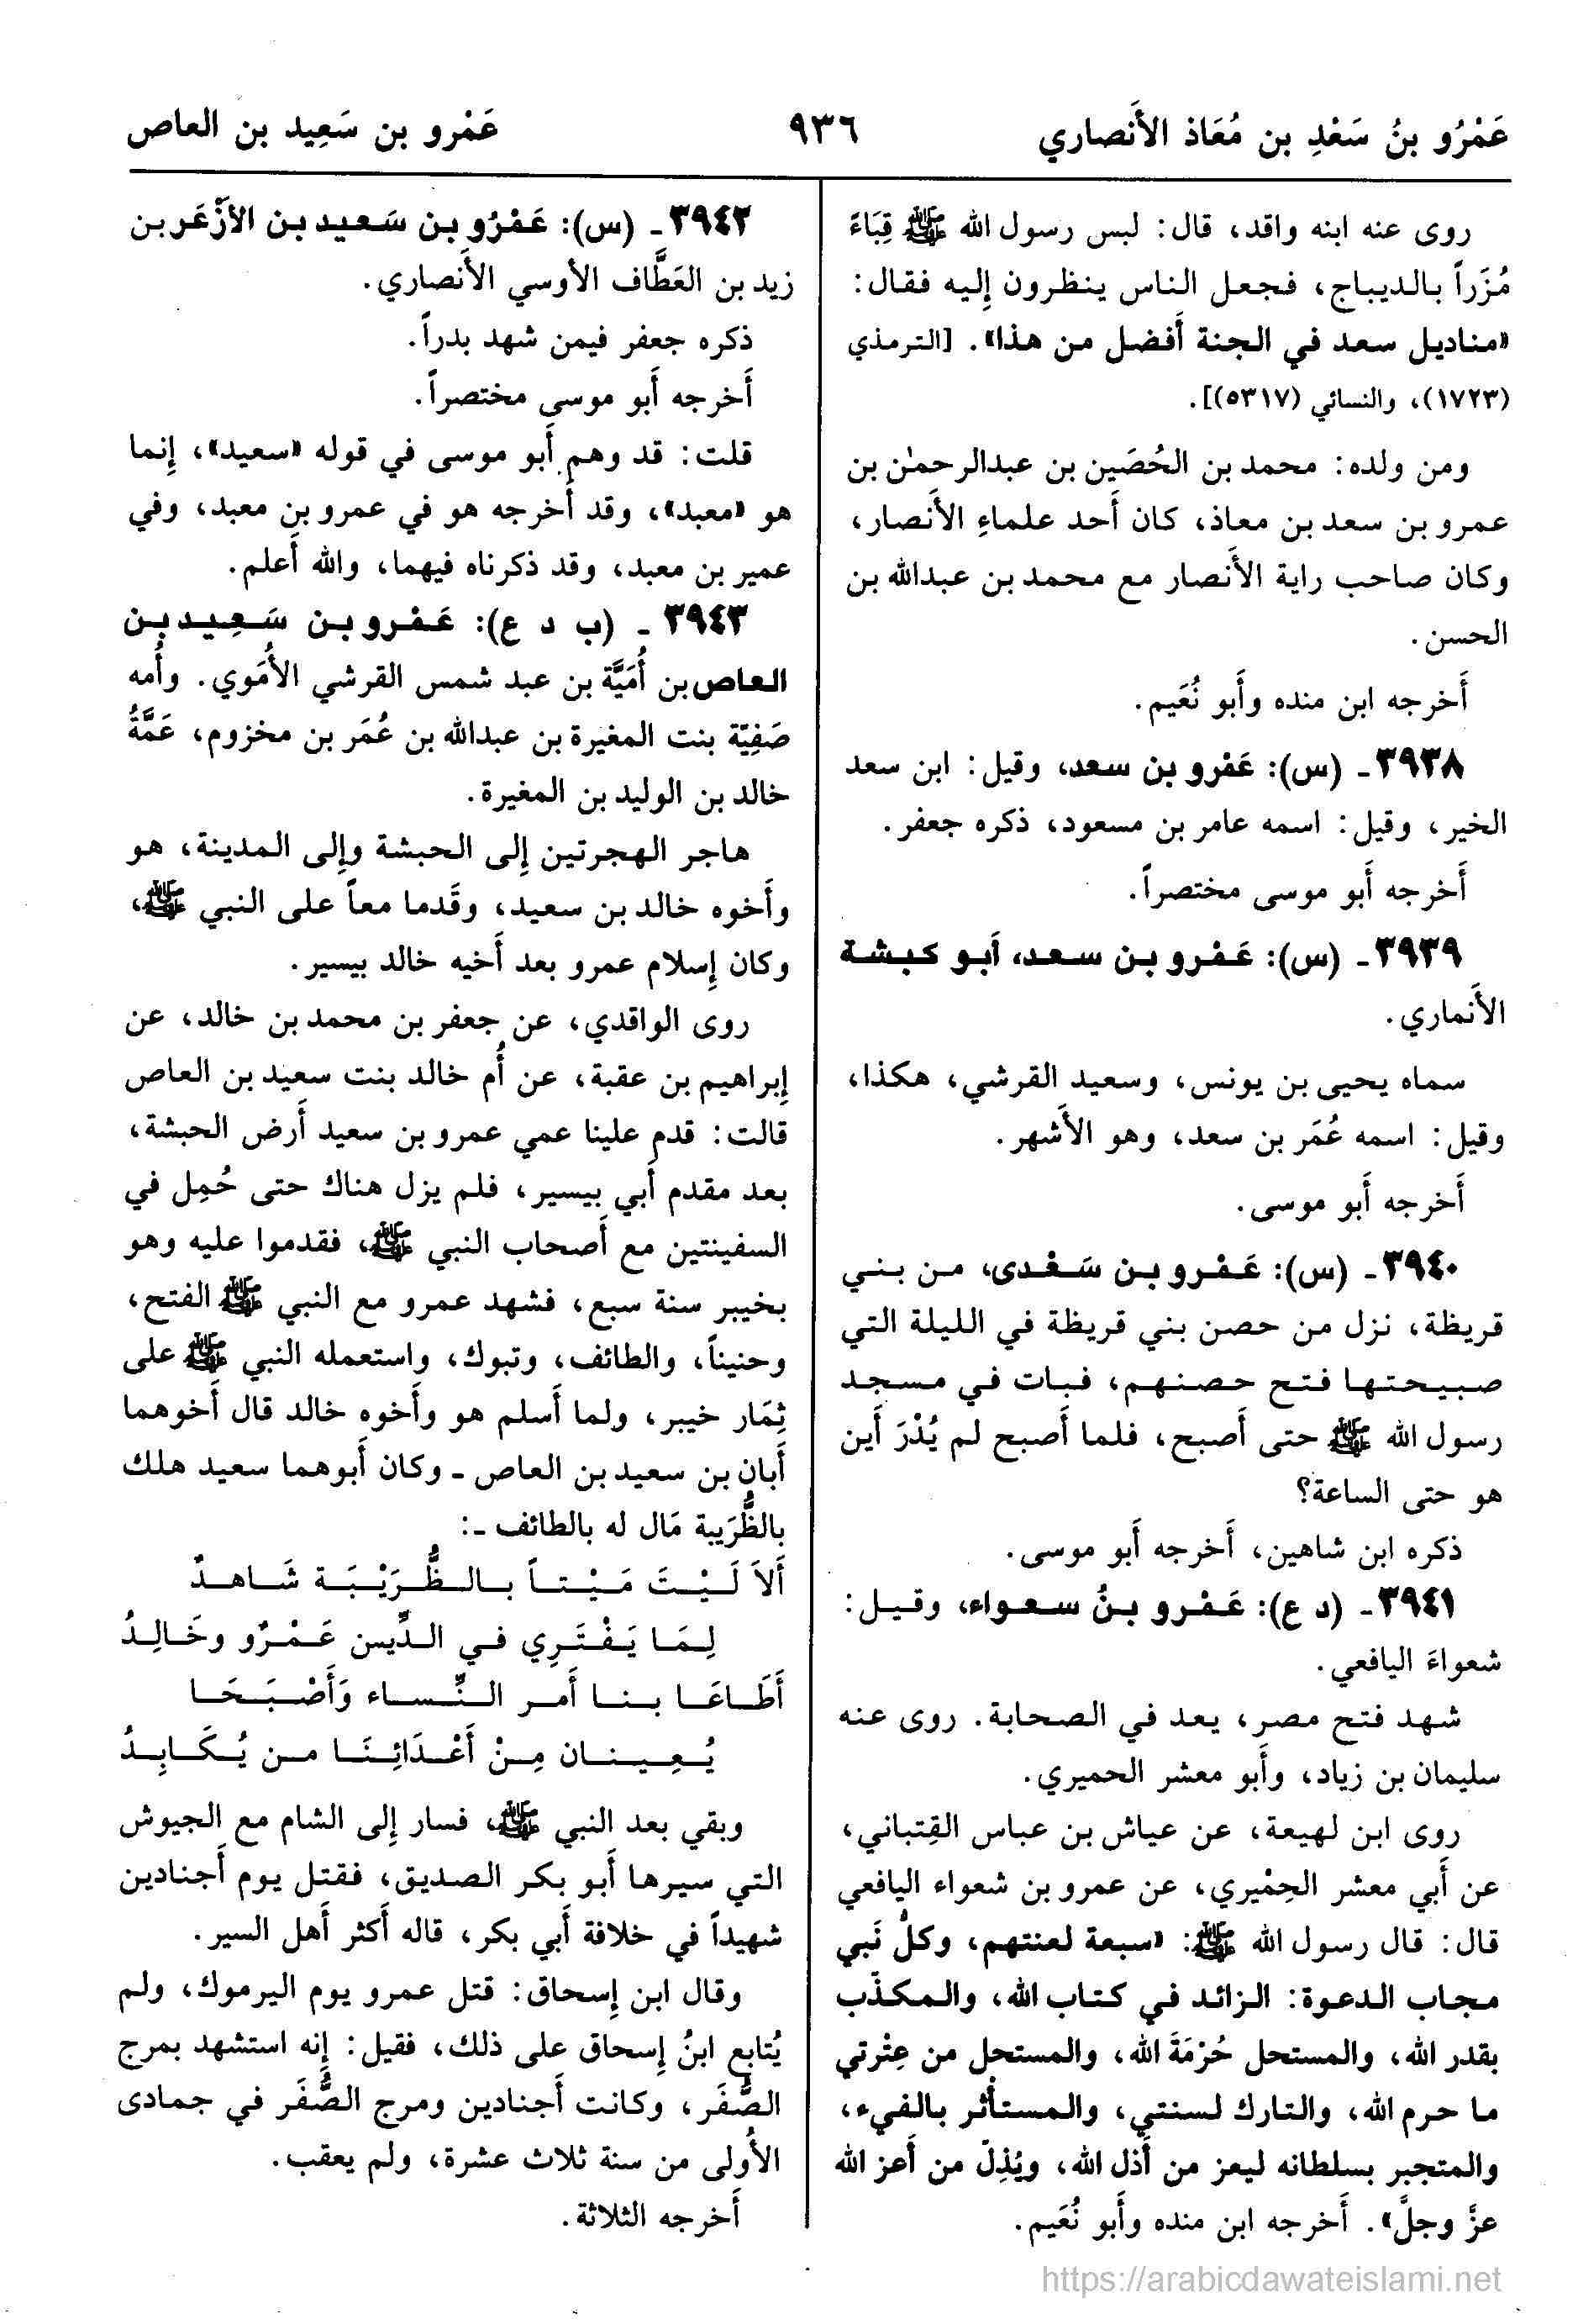 عَمْرُو بنُ سَعْدِ بن مُعَاذ الأَنصاري
٩٣٦
عَمْرو بن سَعِيد بن العاص
روى عنه ابنه واقد، قال: لبس رسول الله ﷺ قِبَاءً
مُزَراً بالديباج، فجعل الناس ينظرون إِليه فقال:
«مناديل سعد في الجنة أَفضل من هذا». [الترمذي
(١٧٢٣)، والنسائي (٥٣١٧)].
ومن ولده: محمد بن الحُصَين بن عبدالرحمٰن بن
عمرو بن سعد بن معاذ، كان أَحد علماءِ الأَنصار،
وكان صاحب راية الأَنصار مع محمد بن عبدالله بن
الحسن.
أَخرجه ابن منده وأَبو نُعَيم.
٣٩٣٨ - (س): عَمْرو بن سعد، وقيل: ابن سعد
الخير، وقيل: اسمه عامر بن مسعود، ذكره جعفر.
أَخرجه أَبو موسى مختصراً.
٣٩٣٩ - (س): عَمْرو بن سعد، أَبو كبشة
الأَنماري.
سماه يحيى بن يونس، وسعيد القرشي، هكذا،
وقيل: اسمه عُمَر بن سعد، وهو الأَشهر.
أَخرجه أَبو موسى.
٣٩٤٠ - (س): عَمْرو بن سَعْدى، من بني
قريظة، نزل من حصن بني قريظة في الليلة التي
صبيحتها فتح حصنهم، فبات في مسجد
رسول الله ﷺ حتى أَصبح، فلما أَصبح لم يُدْرَ أَين
هو حتى الساعة؟
ذكره ابن شاهين، أَخرجه أَبو موسى.
٣٩٤١ - (د ع): عَمْرو بنُ سعواء، وقيل:
شعواءَ اليافعي.
شهد فتح مصر، يعد في الصحابة. روى عنه
سليمان بن زياد، وأَبو معشر الحميري.
روى ابن لهيعة، عن عياش بن عباس القِتباني،
عن أَبي معشر الحِمْيري، عن عمرو بن شعواء اليافعي
قال: قال رسول الله ﷺ: «سبعة لعنتهم، وكلُّ نَبي
مجاب الدعوة: الزائد في كتاب الله، والمكذّب
بقدر الله، والمستحل حُرْمَةَ الله، والمستحل من عِتْرتي
ما حرم الله، والتارك لسنتي، والمستأْثر بالفيء،
والمتجبر بسلطانه ليعز من أَذل الله، ويُذِلّ من أَعز الله
عزَّ وجلَّ». أَخرجه ابن منده وأَبو نُعَيم.
٣٩٤٢ - (س): عَمْرُو بن سَعيد بن الأَزْعَر بن
زيد بن العَطَّاف الأوسي الأَنصاري.
ذكره جعفر فيمن شهد بدراً.
أَخرجه أَبو موسى مختصراً.
قلت: قد وهم أَبو موسى في قوله «سعيد»، إِنما
هو «معبد»، وقد أَخرجه هو في عمرو بن معبد، وفي
عمير بن معبد، وقد ذكرناه فيهما، والله أَعلم.
٣٩٤٣ - (ب د ع): عَمْرو بن سَعِيد بن
العاص بن أُمَيَّة بن عبد شمس القرشي الأُمَوي. وأُمه
صَفِيّة بنت المغيرة بن عبدالله بن عُمَر بن مخزوم، عَمَّةُ
خالد بن الوليد بن المغيرة.
هاجر الهجرتين إِلى الحبشة وإِلى المدينة، هو
وأَخوه خالد بن سعيد، وقَدما معاً على النبي ﷺ،
وكان إِسلام عمرو بعد أَخيه خالد بيسير.
روى الواقدي، عن جعفر بن محمد بن خالد، عن
إِبراهيم بن عقبة، عن أُم خالد بنت سعيد بن العاص
قالت: قدم علينا عمي عمرو بن سعيد أَرض الحبشة،
بعد مقدم أَبي بيسير، فلم يزل هناك حتى حُمِل في
السفينتين مع أَصحاب النبي ﷺ، فقدموا عليه وهو
بخيبر سنة سبع، فشهد عمرو مع النبي ﷺ الفتح،
وحنيناً، والطائف، وتبوك، واستعمله النبي ﷺ على
ثِمَار خيبر، ولما أَسلم هو وأَخوه خالد قال أَخوهما
أَبان بن سعيد بن العاص - وكان أَبوهما سعيد هلك
بالظُّرَيبة مَال له بالطائف -:
أَلاَ لَيْتَ مَيْتاً بالظُّرَيْبَة شَاهدٌ
لِمَا يَفْتَرِي في الدِّين عَمْرٌو وخَالِدُ
أَطَاعَا بنا أَمر النِّساء وَأَصْبَحَا
يُعِينان مِنْ أَعْدَائِنَا من يُكَابِدُ
وبقي بعد النبي ﷺ، فسار إِلى الشام مع الجيوش
التي سيرها أَبو بكر الصديق، فقتل يوم أَجنادين
شهيداً في خلافة أَبي بكر، قاله أَكثر أَهل السير.
وقال ابن إِسحاق: قتل عمرو يوم اليرموك، ولم
يُتابع ابنُ إِسحاق على ذلك، فقيل: إِنه استشهد بمرج
الصُّفَر، وكانت أَجنادين ومرج الصُّفَر في جمادى
الأُولى من سنة ثلاث عشرة، ولم يعقب.
أَخرجه الثلاثة.
https://arabicdawateislami.net